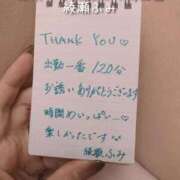 綾瀬ふみ
THANK YOU♡
出勤一番120分
お誘いありがとうございます
時間めいっぱい〜♡
楽しかったです
綾瀬ふみ